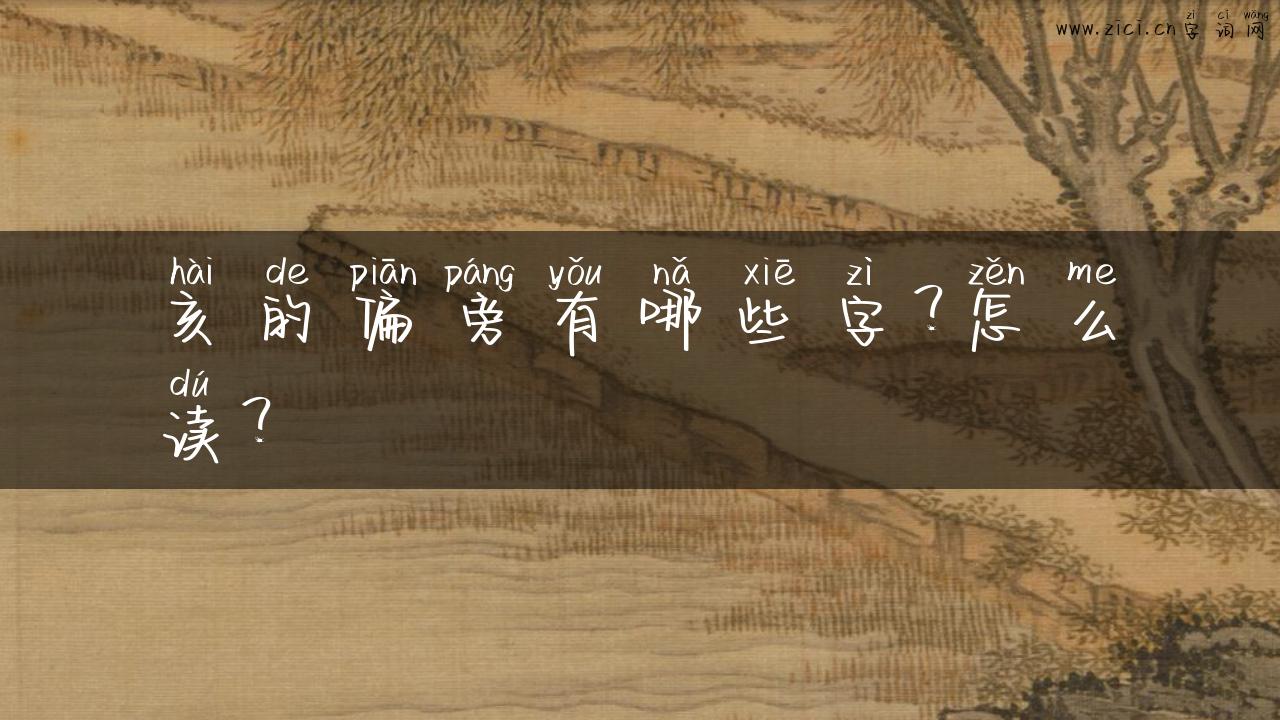 zì cí wǎng
www.zici.cn字词网
hài de piān páng yǒu nǎ xiē zì zěn me
亥的偏旁有哪些字？怎么
dú
读？